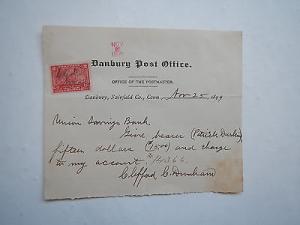 Danbury Post Office.
OFFICE OF THE POSTMASTER.
Danbury, Fairfield Co., Conn., Nov 25 1899
Union Savings Bank.
Give bearer (Patrick
fifteen dollars (15.00) and charge
to my account.
Clifford C. Dunham